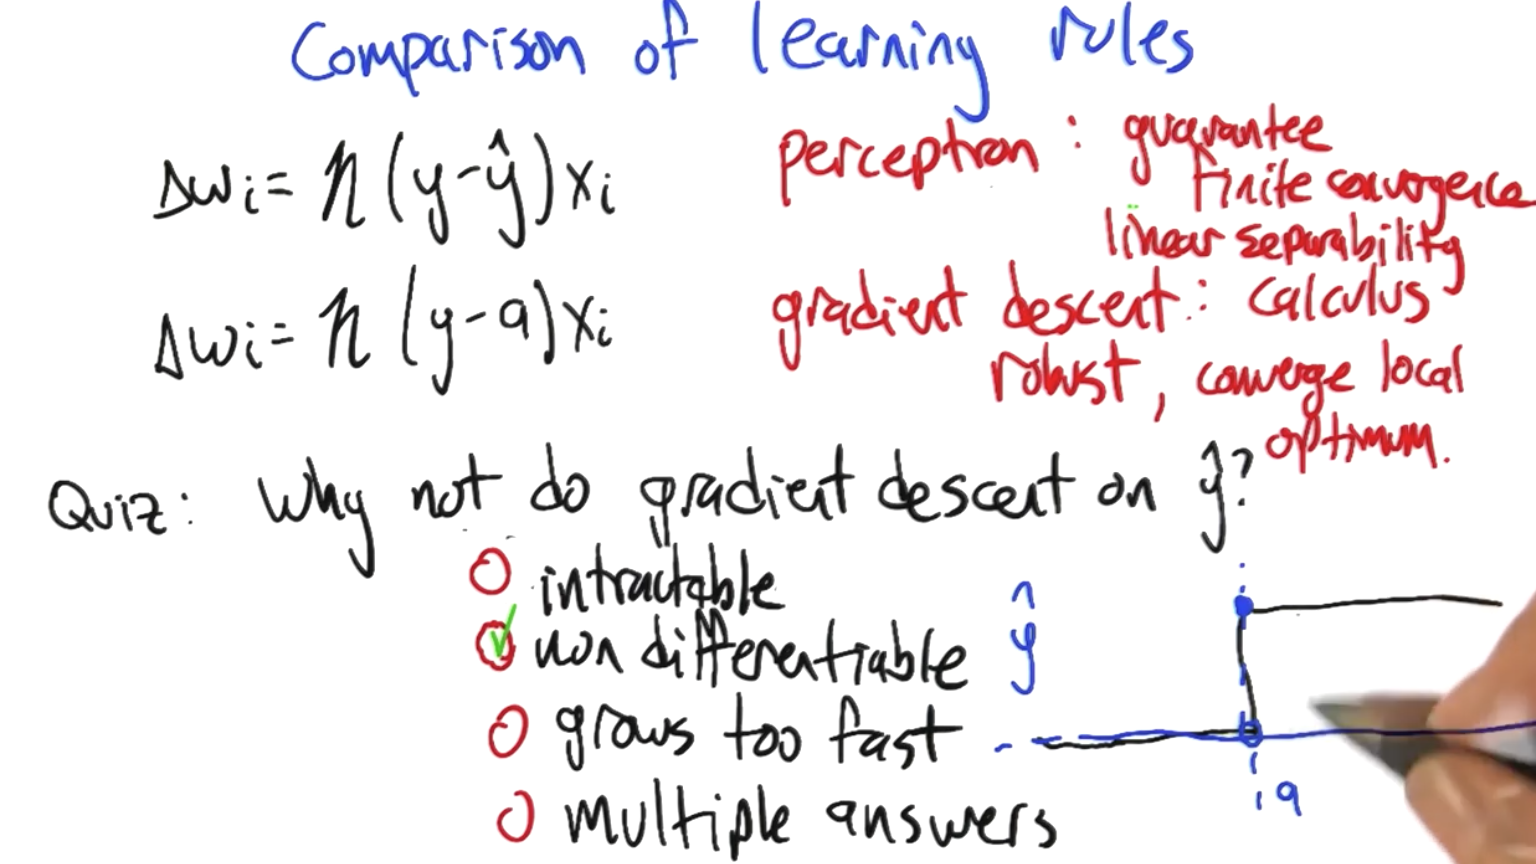 Comparison of learning rules
Δwi = η (y-ŷ) xi
perceptron : guarantee
finite convergence
linear separability
Δwi = η (y-a) xi
gradient descent : calculus
robust, converge local
optimum.
Quiz: Why not do gradient descent on ŷ?
intractable
non differentiable
grows too fast
multiple answers
ŷ
a